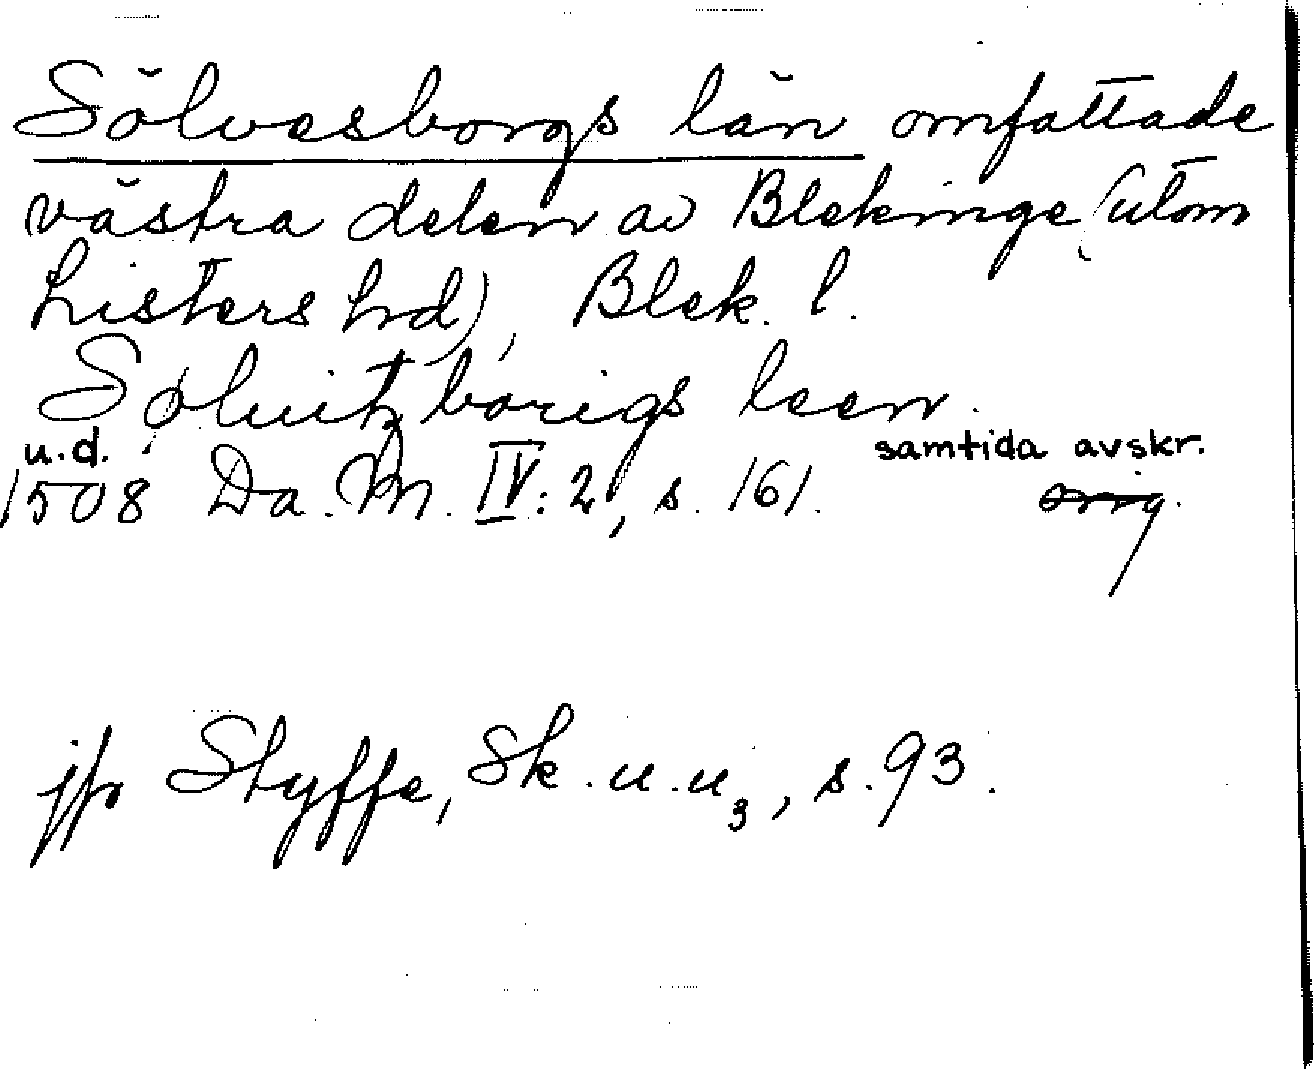 Sölvesborgs län omfattade
västra delen av Blekinge (utom
Listers hd), Blek. l.
Søluitzborigs leen.
u.d. samtida avskr.
1508 Da. M. IV: 2, s. 161. orig.
jfr Styffe, Sk. u. u₃, s. 93.